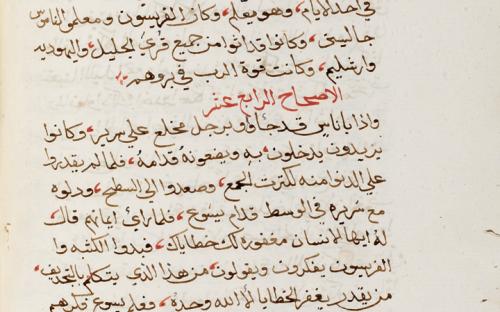 في احد الايام، وهو يعلم، وكان الفريسيون ومعلموا الناموس
جالسين، وكانوا قد اتوا من جميع قرى الجليل، واليهوديه
واورشليم، وكانت قوة الرب في بروهم
الاصحاح الرابع عشر
واذا باناس قد جاوا برجل مخلع علي سرير، وكانوا
يريدون يدخلون به ويضعونه قدامه، فلما لم يقدروا
علي الدنوا منه لكثرت الجمع، وصعدوا الي السطح، ودلوه
مع سريره في الوسط قدام يسوع، فلما راي ايمانهم قال
له ايها الانسان مغفوره لك خطاياك، فبدوا الكتبه وا
الفريسيون يفكرون ويقولون، من هذا الذي يتكلم بالتجديف،
من يقدر يغفر الخطايا الا الله وحده، فعلم يسوع فكرهم